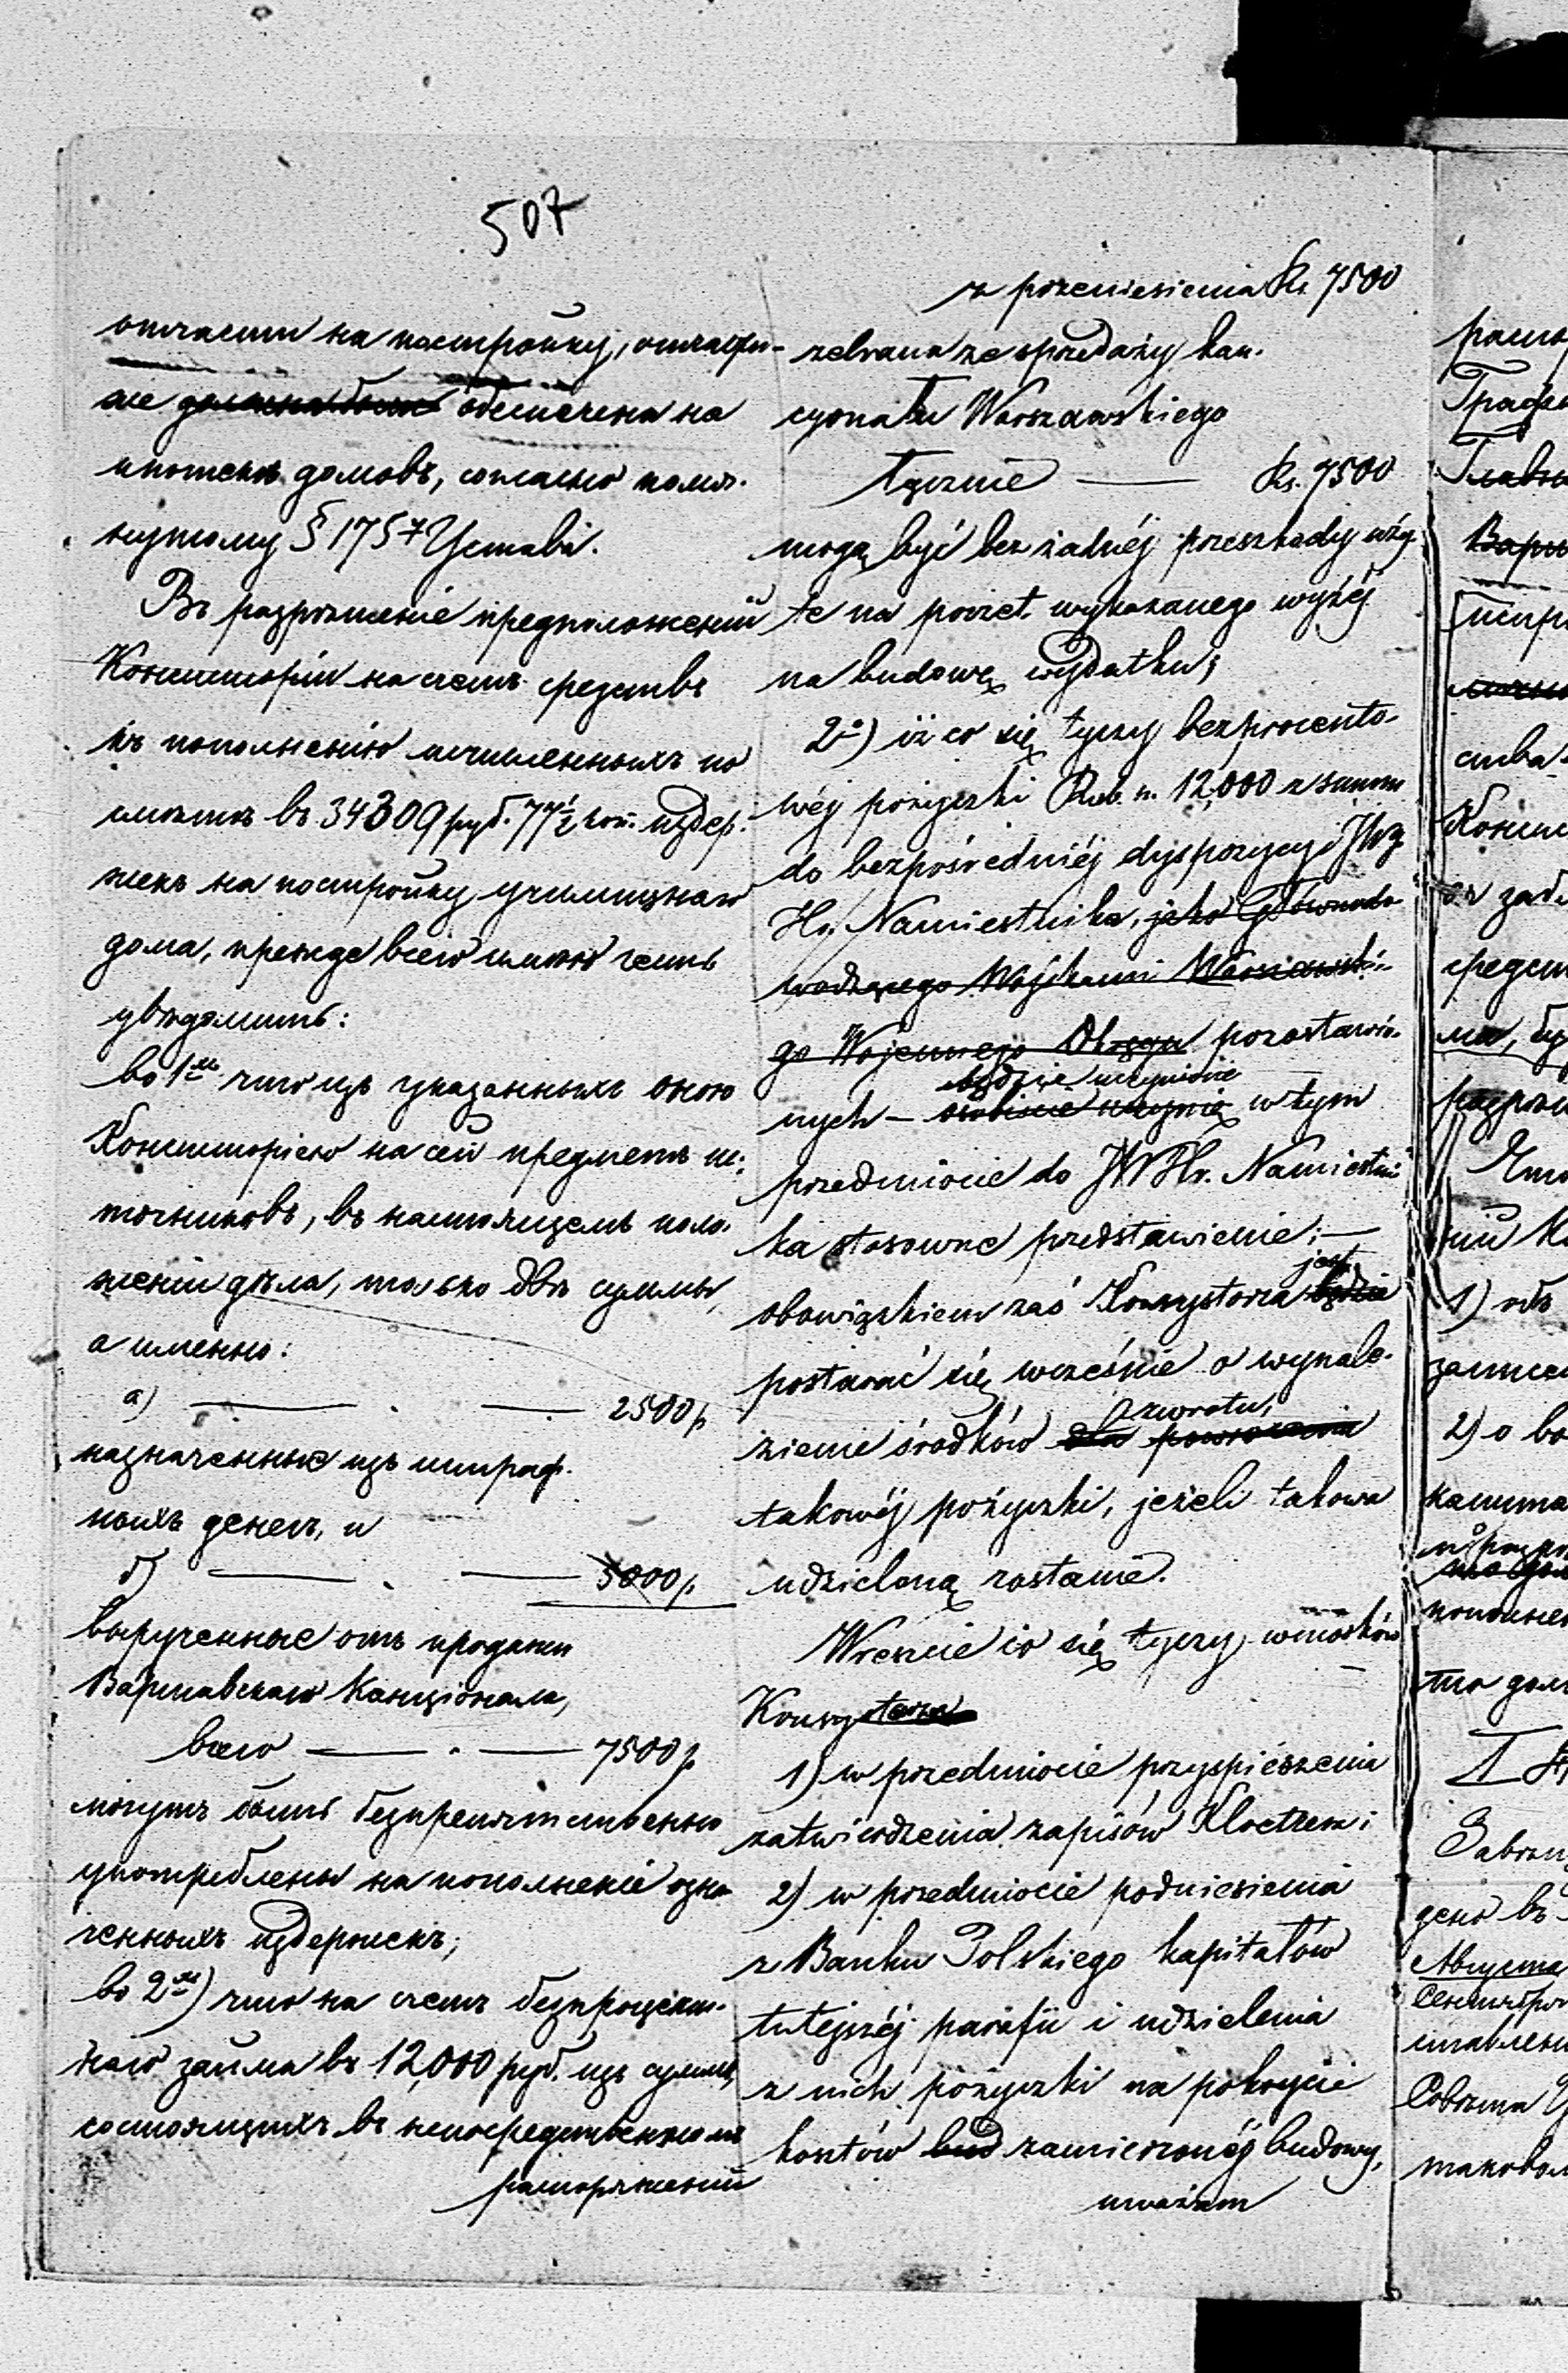 507
отчасти на постройку, отчасти-
же должна быть обеспечена на
ипотекѣ домовъ, согласно помя-
нутому § 1757 Устава.
Въ разрѣшеніе предположеній
Консисторіи на счетъ средствъ
къ пополненію исчисленныхъ по
смѣтѣ въ 34309 руб. 77½ коп. издер-
жекъ на постройку училищнаго
дома, прежде всего имѣю честь
увѣдомить:
во 1хъ что изъ указанныхъ оною
Консисторіею на сей предметъ ис-
точниковъ, въ настоящемъ поло-
женіи дѣла, только двѣ суммы,
а именно:
а) — . — 2500 р
назначенные изъ штраф-
ныхъ денегъ, и
б) — . — 5000 р.
вырученные отъ продажи
Варшавскаго Канціонала,
всего — . — 7500 р
могутъ быть безпрепятственно
употреблены на пополненіе озна-
ченныхъ издержекъ;
во 2хъ) что на счетъ безпроцент-
наго займа въ 12,000 руб. изъ суммъ,
состоящихъ въ непосредственномъ
распоряженіи
z przeniesienia Rs. 7500
zebrana ze sprzedaży kan-
cyonału Warszawskiego
łącznie — Rs. 7500
mogą być bez żadnéj przeszkody uży-
te na poczet wykazanego wyżéj
na budowę wydatku;
2o) iż co się tyczy bezprocento-
wéj pożyczki Rub. s. 12,000 z summ
do bezpośredniéj dyspozycyi JWg
Hr. Namiestnika, jako Głównodo-
wodzącego Wojskami Warszawskie-
go Wojennego Okręgu pozostawio-
będzie uczynione
nych — osobiście uczynię w tym
przedmiocie do JW Hr. Namiestni-
ka stosowne przedstawienie; —
jest
obowiązkiem zaś Konsystorza będzie
postarać się wcześnie o wynale-
zwrotu,
zienie środków dla powrócenia
takowéj pożyczki, jeżeli takowa
udzieloną zostanie.
Wreszcie co się tyczy wniosków
Konsystorza
1) w przedmiocie przyspieszenia
zatwierdzenia zapisów Kloetzera i
2) w przedmiocie podniesienia
z Banku Polskiego kapitałów
tutejszéj parafii i udzielenia
z nich pożyczki na pokrycie
kosztów bud zamierzonéj budowy,
uważam